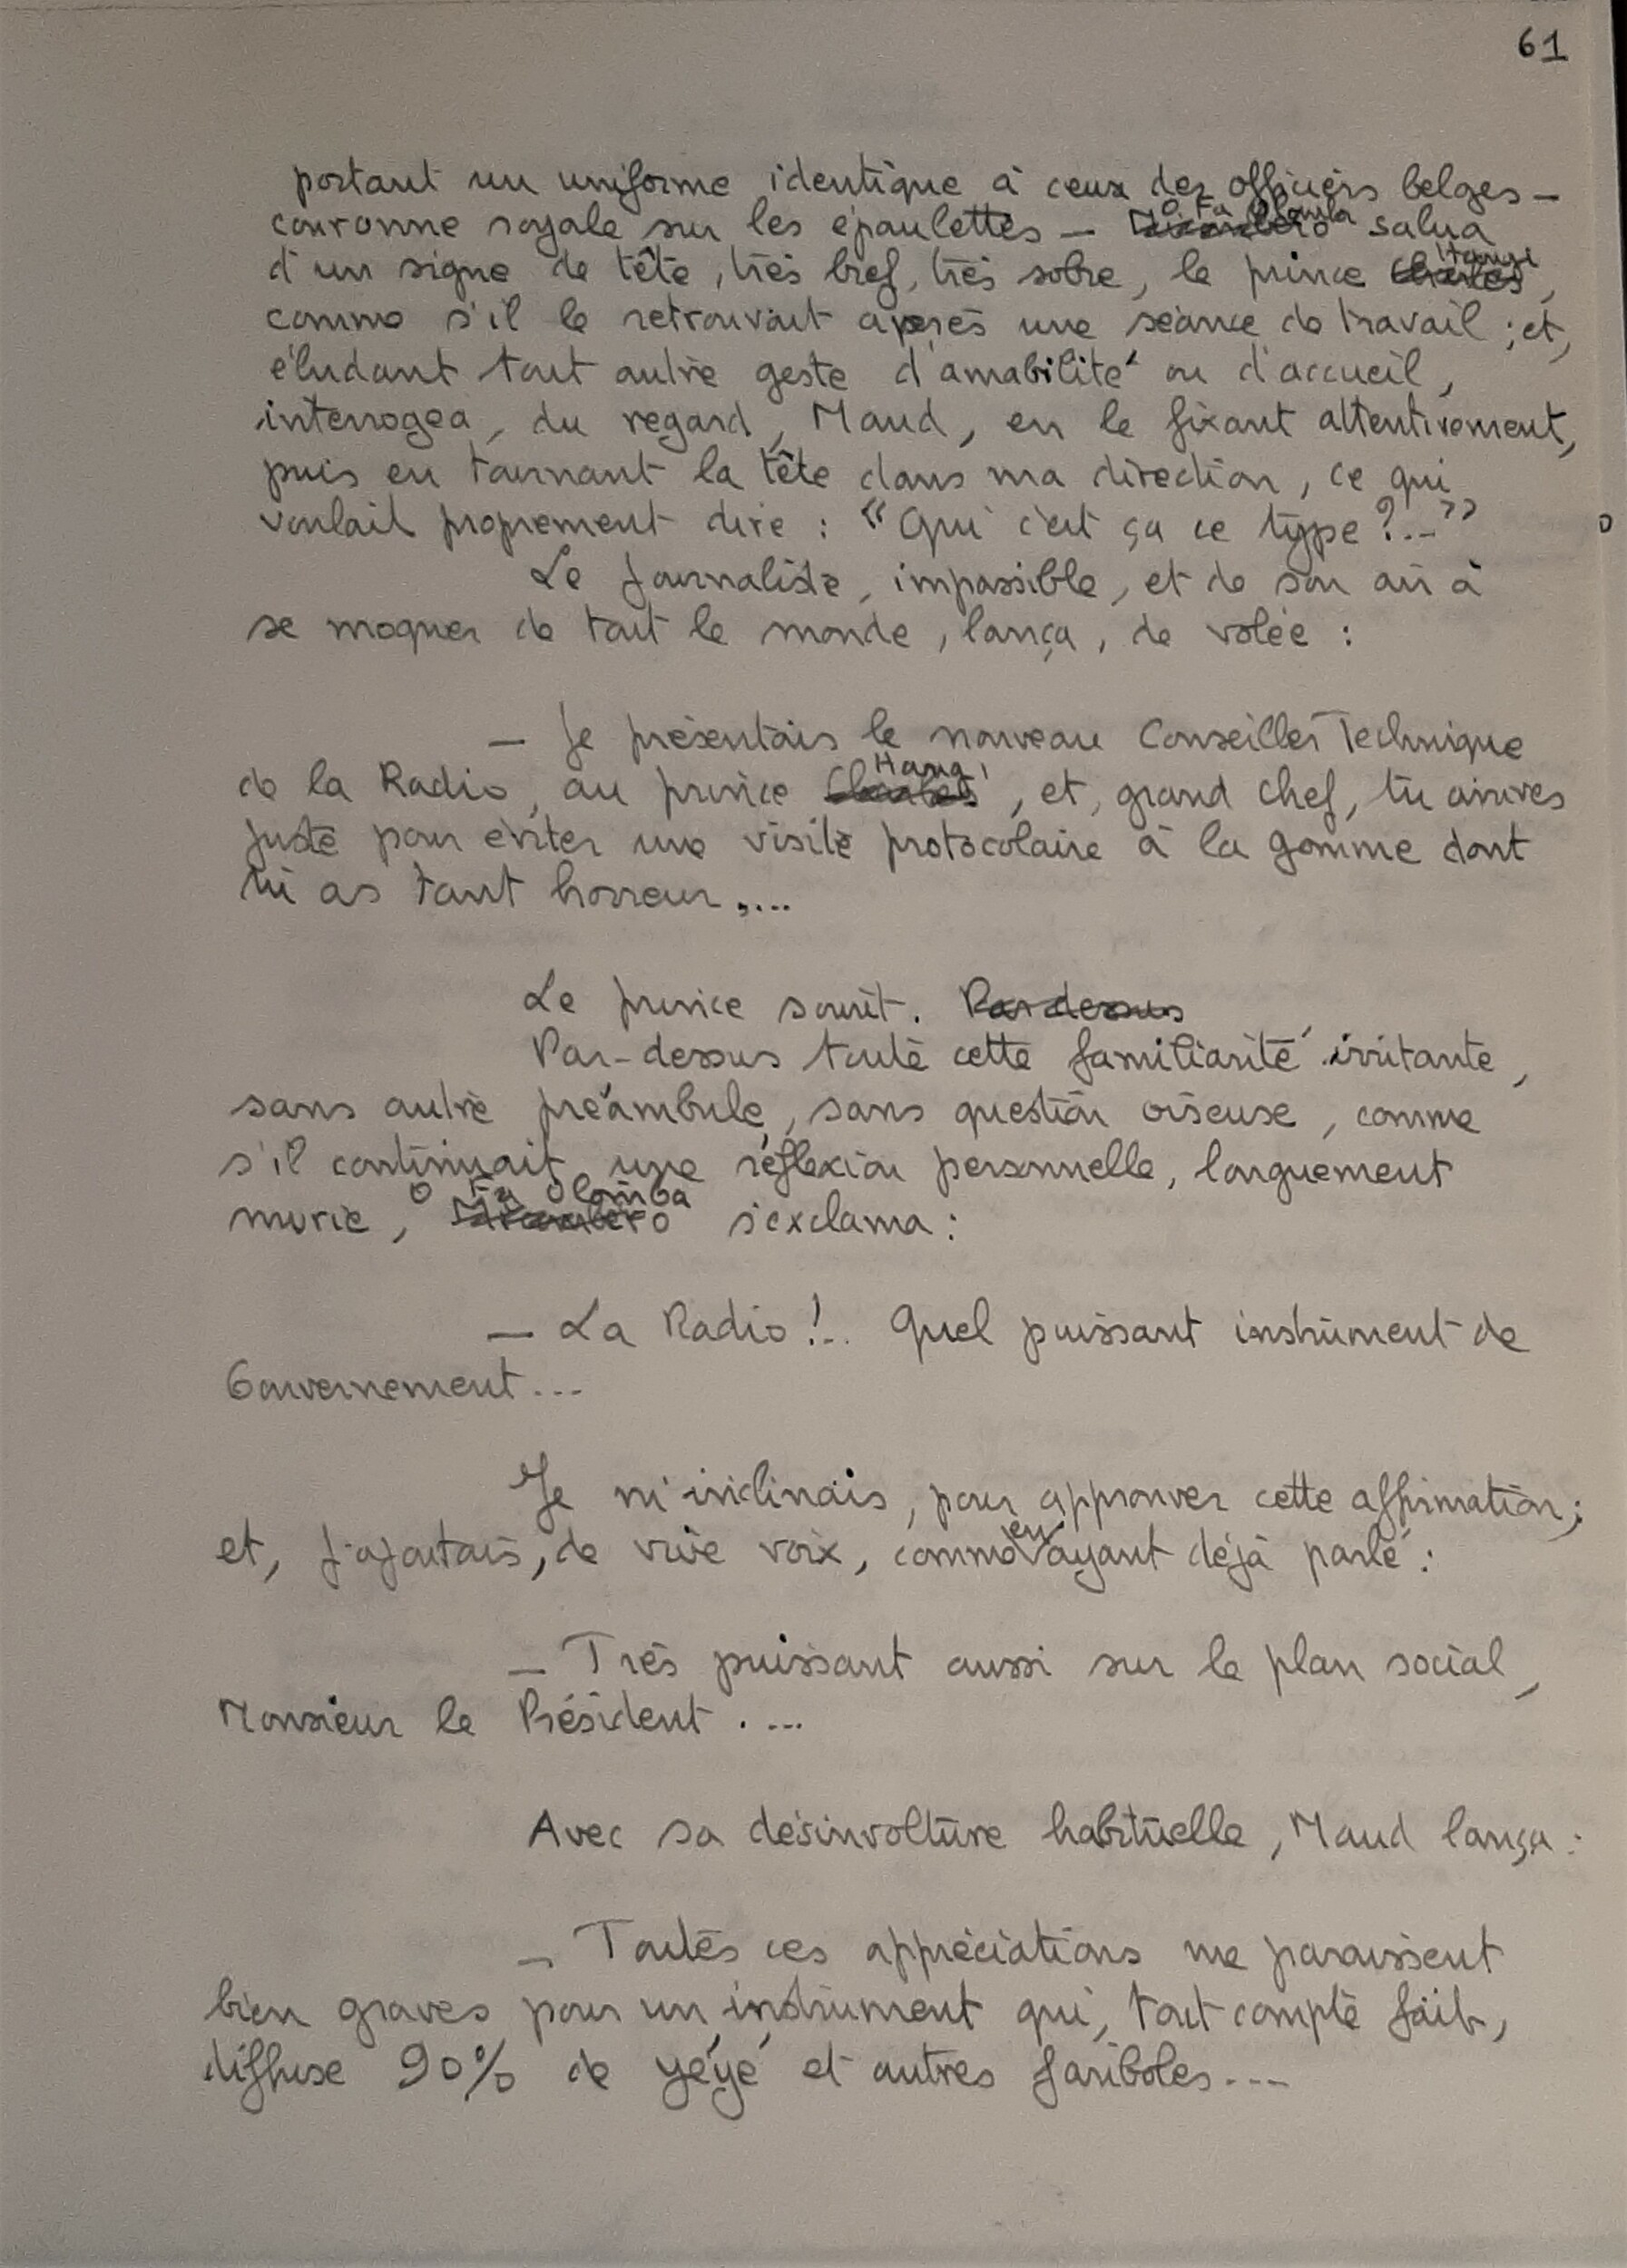 61
portant un uniforme identique à ceux des officiers belges —
couronne royale sur les épaulettes — O'Fu Olomba salua
d'un signe de tête, très bref, très sobre, le prince Hangi,
comme s'il le retrouvait après une séance de travail ; et,
éludant tout autre geste d'amabilité ou d'accueil,
interrogea, du regard, Maud, en le fixant attentivement,
puis en tournant la tête dans ma direction, ce qui
voulait proprement dire : "Qui c'est ça ce type ?..."
Le journaliste, impassible, et de son air à
se moquer de tout le monde, lança, de volée :
— Je présentais le nouveau Conseiller Technique
de la Radio, au prince Hangi, et, grand chef, tu arrives
juste pour éviter une visite protocolaire à la gomme dont
tu as tant horreur....
Le prince sourit. Par dessus
Par-dessus toute cette familiarité irritante,
sans autre préambule, sans question oiseuse, comme
s'il continuait une réflexion personnelle, longuement
murie, O'Fu Olomba s'exclama :
— La Radio !.. Quel puissant instrument de
Gouvernement...
Je m'inclinais, pour approuver cette affirmation ;
et, j'ajoutais, de vive voix, comme en ayant déjà parlé :
— Très puissant aussi sur le plan social,
Monsieur le Président....
Avec sa désinvolture habituelle, Maud lança :
— Toutes ces appréciations me paraissent
bien graves pour un instrument qui, tout compte fait,
diffuse 90% de yéyé et autres fariboles...